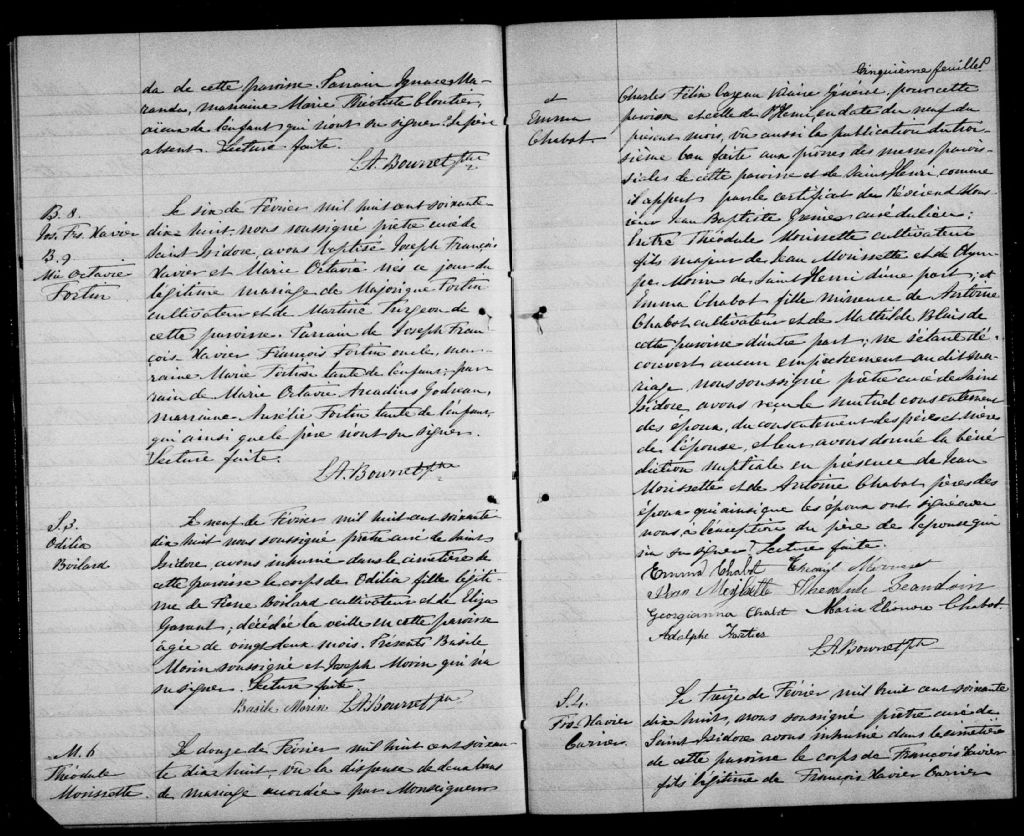 da de cette paroisse Parrain Ignace Ma-
randa, marraine Marie Théotiste Cloutier,
aïeux de l'enfant, qui n'ont su signer. Le père
absent. Lecture faite.
L.A. Bourret Ptre
B. 8.
Jos. Frs. Xavier
B. 9
Mie Octavie
Fortin
Le six de Février mil huit cent soixante-
dix huit, nous soussigné prêtre curé de
Saint Isidore, avons baptisé Joseph François
Xavier et Marie Octavie nés ce jour du
légitime mariage de Majorique Fortin
cultivateur et de Martine Turgeon de
cette paroisse. Parrain de Joseph Fran-
çois Xavier François Fortin oncle, mar-
raine Marie Fortin tante de l'enfant; par-
rain de Marie Octavie Arcadius Godreau,
marraine Aurélie Fortin tante de l'enfant,
qui ainsi que le père n'ont su signer.
Lecture faite.
L.A. Bourret ptre
S. 3.
Odilia
Boilard
Le neuf de Février mil huit cent soixante
dix huit nous soussigné prêtre curé de Saint
Isidore, avons inhumé dans le cimetière de
cette paroisse le corps de Odilia fille légiti-
me de Pierre Boilard cultivateur et de Eliza
Garant, décédée la veille en cette paroisse
âgée de vingt deux mois. Présents Basile
Morin soussigné et Joseph Morin qui n'a
su signer. Lecture faite
Basile Morin L.A. Bourret ptre
M. 6
Théodule
Morissette
Le douze de Février mil huit cent soixan-
te dix huit, vu la dispense de deux bans
de mariage accordée par Monseigneur
Cinquième feuillet
et
Emma
Chabot
Charles Félix Cazeau Vicaire Général pour cette
paroisse et celle de St Henri, en date du neuf du
présent mois, vu aussi la publication du troi-
sième ban faite aux prônes des messes parois-
siales de cette paroisse et de Saint Henri, comme
il appert par le certificat du Révérend Mon-
sieur Jean Baptiste Grenier curé du lieu;
Entre Théodule Morissette cultivateur
fils majeur de Jean Morissette et de Olym-
pe Morin de Saint Henri d'une part; et
Emma Chabot fille mineure de Antoine
Chabot cultivateur et de Mathilde Blais de
cette paroisse d'autre part; ne s'étant dé-
couvert aucun empêchement au dit ma-
riage, nous soussigné prêtre curé de Saint
Isidore, avons reçu le mutuel consentement
des époux, du consentement des pères et mères
de l'épouse, et leur avons donné la béné-
diction nuptiale en présence de Jean
Morissette et de Antoine Chabot pères des
époux qui ainsi que les époux ont signé avec
nous à l'exception du père de l'épouse qui
n'a su signer. Lecture faite.
Emma Chabot
Theodule Beaudoin
Georgianna Chabot Maria Elionore Chabot
Adolphe
L.A. Bourret ptre
S. 4.
Frs. Xavier
Carrier
Le treize de Février mil huit cent soixante
dix huit, nous soussigné prêtre curé de
Saint Isidore avons inhumé dans le cimetière
de cette paroisse le corps de François Xavier
fils légitime de François Xavier Carrier